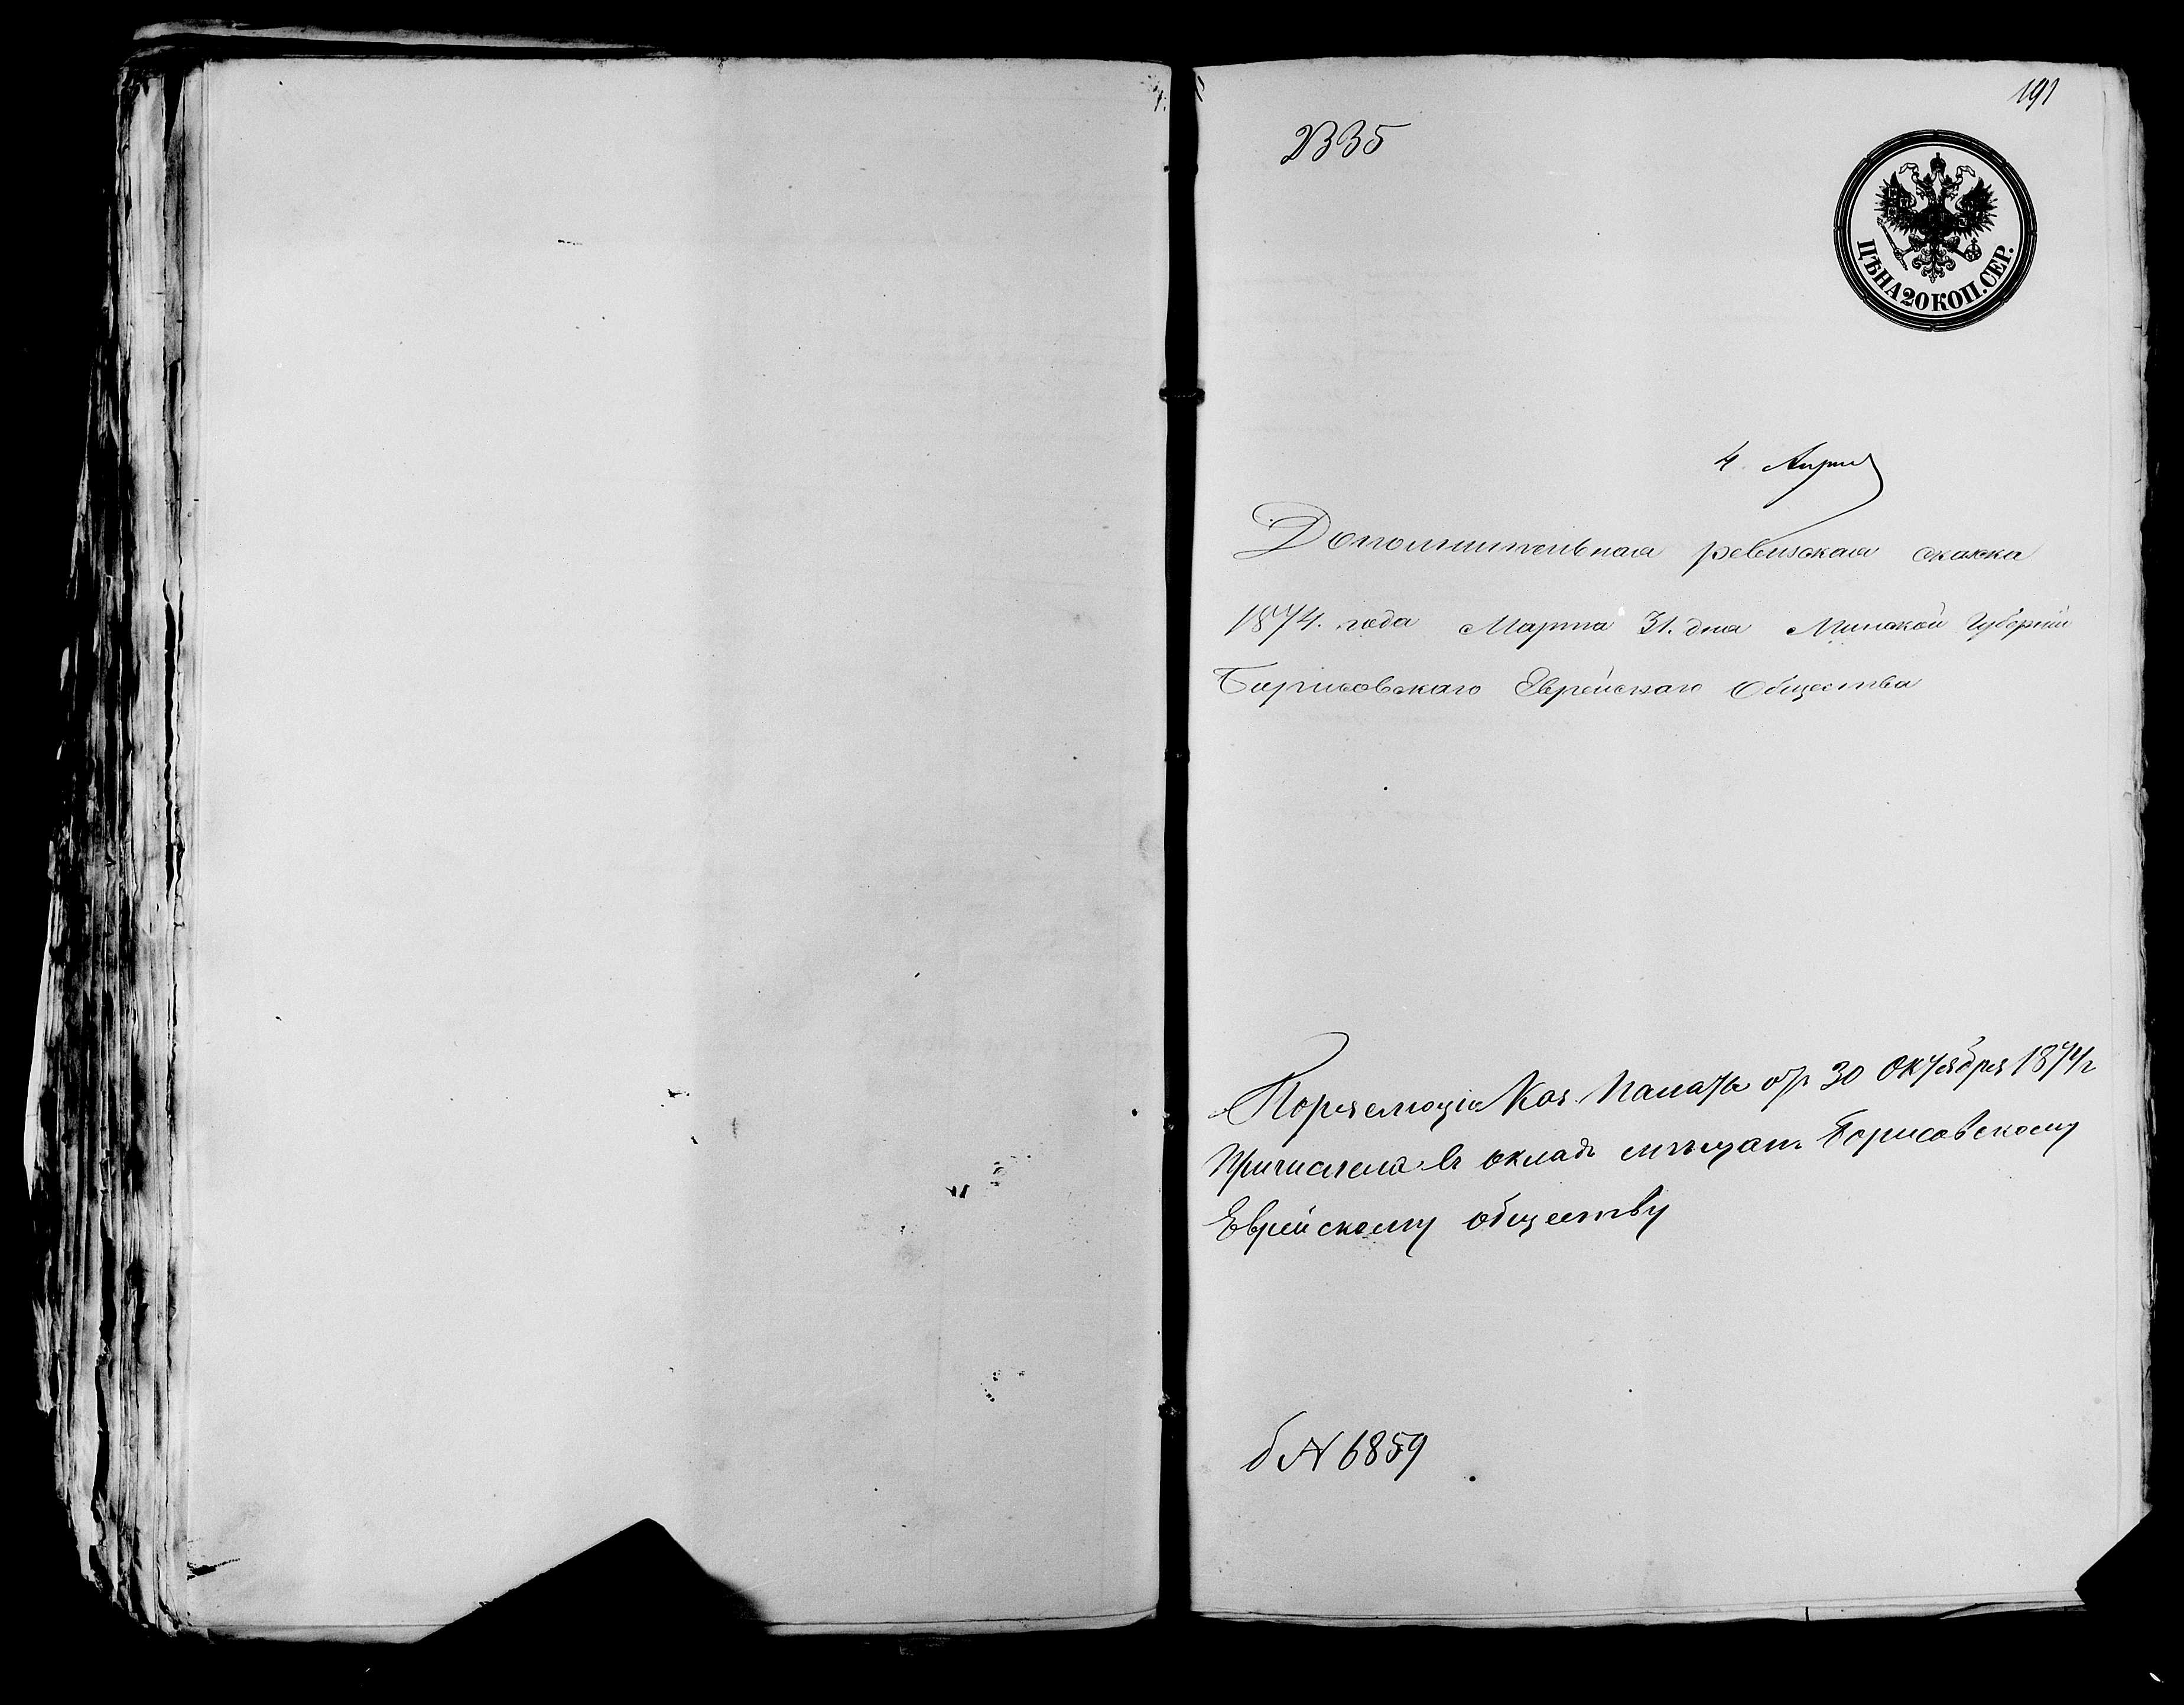 191
2335
ЦѢНА 20 КОП. СЕР.
4 Апрѣл
Дополнительная ревизская сказка
1874. года Марта 31. дня Минской Губерніи
Борисовскаго Еврейскаго Общества
По резолюціи Каз. Палаты отъ 30 Октября 1874 г
Причислена въ окладъ мѣщанъ Борисовскому
Еврейскому обществу
б N 6859